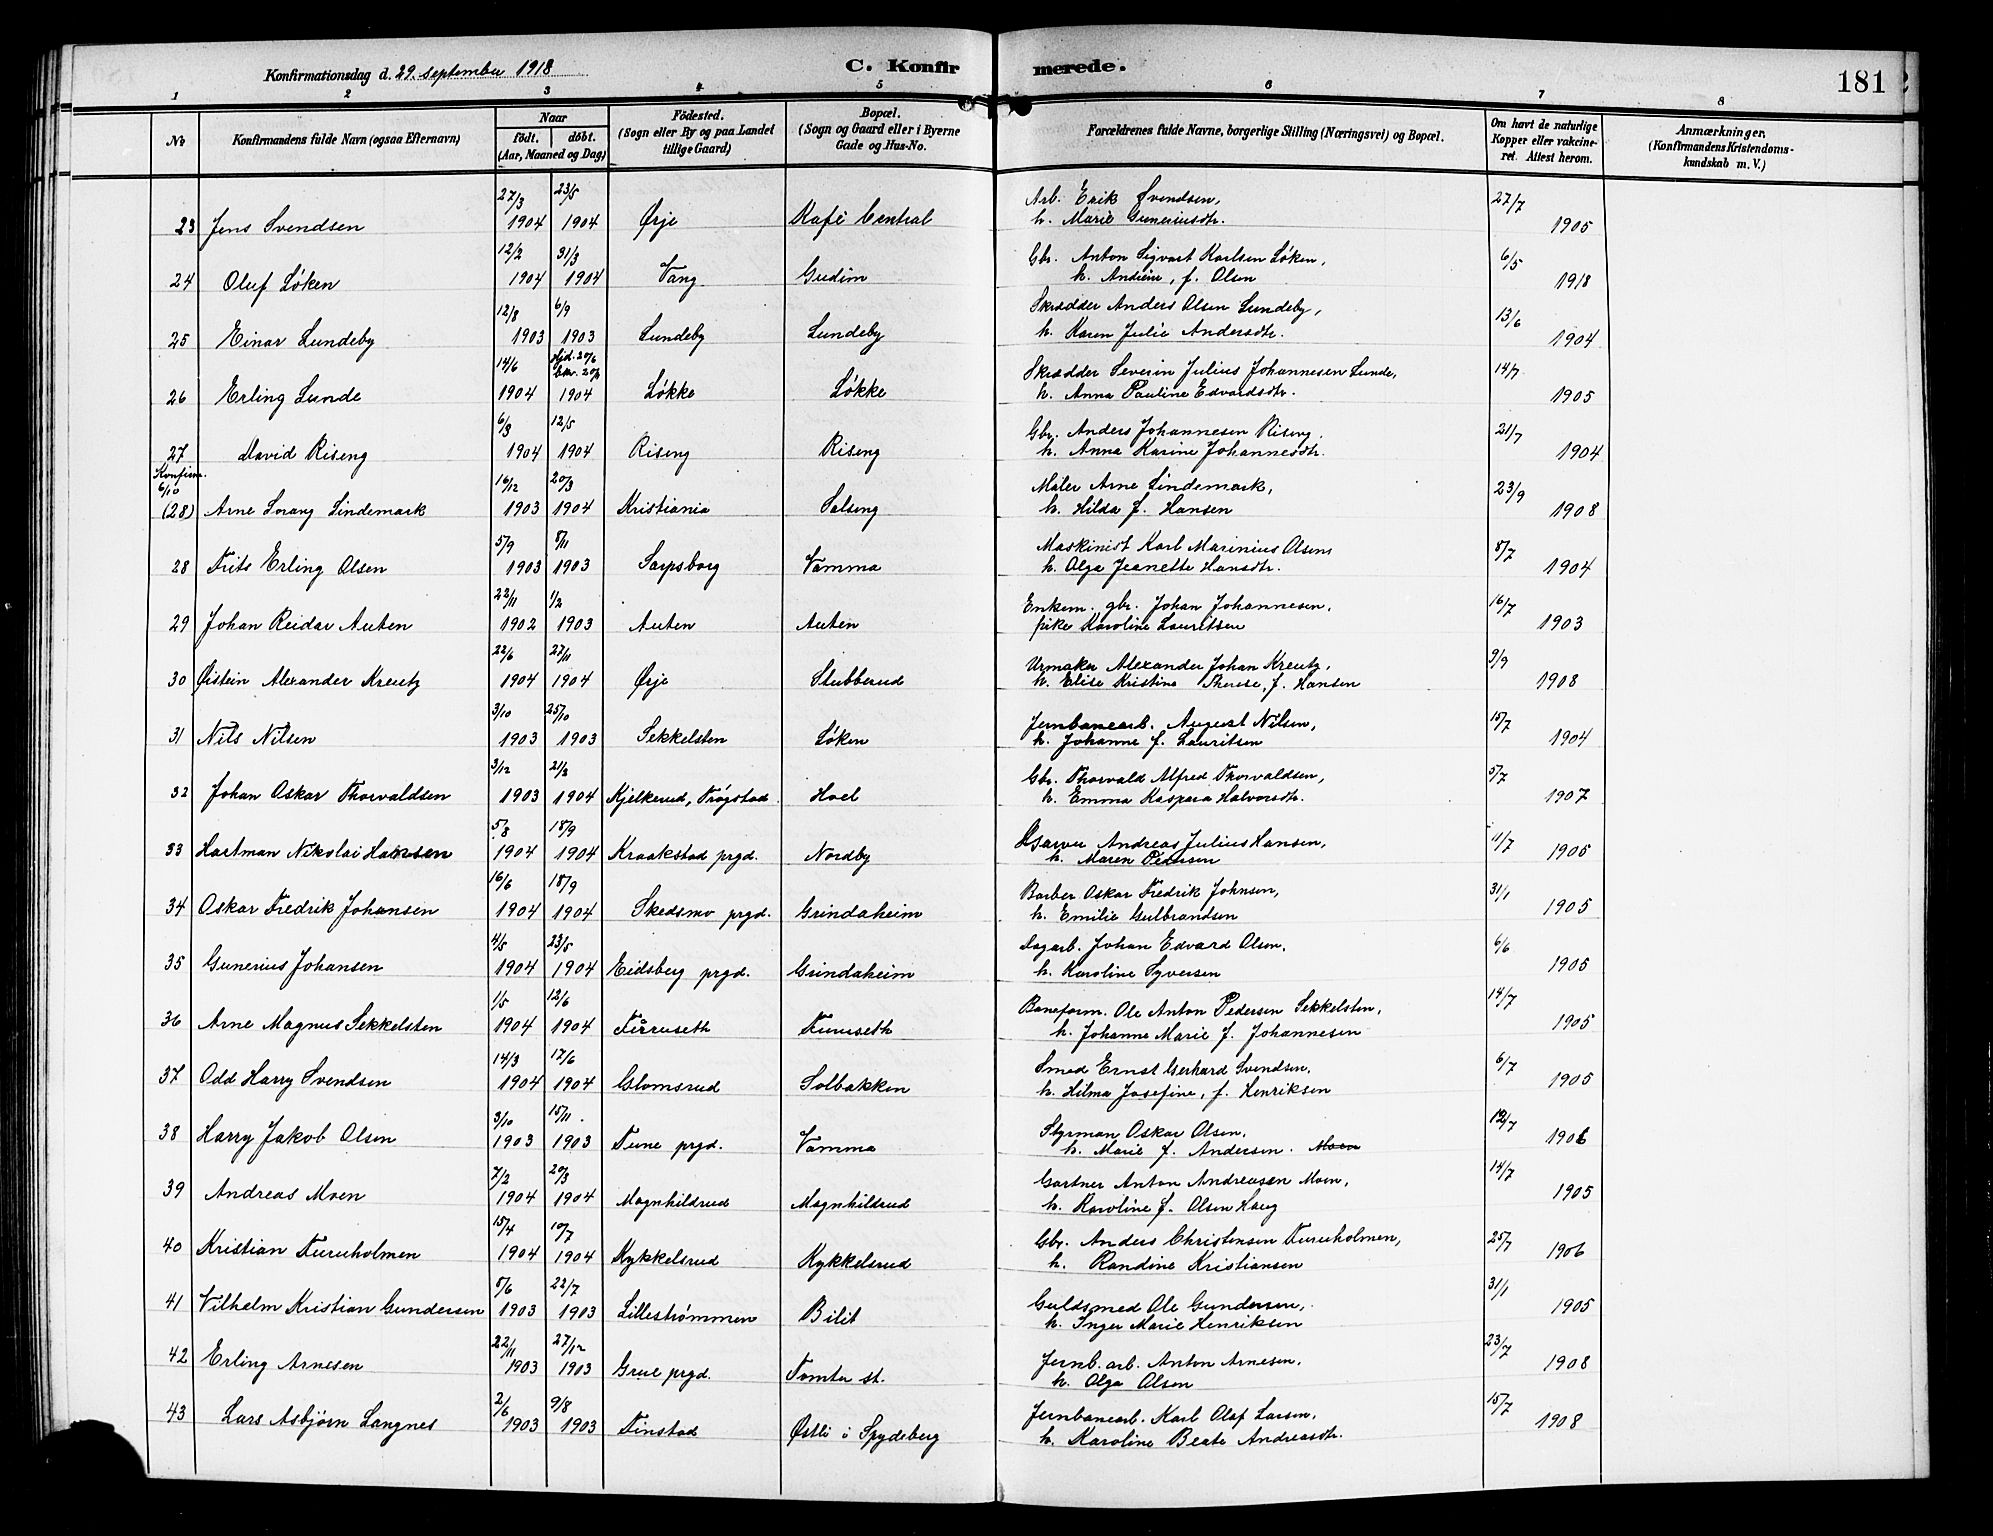 Konfirmationsdag d. 29. september 1918
C. Konfirmerede.
181
1 2 3 4 5 6 7 8
No
Konfirmandens fulde Navn (ogsaa Efternavn)
Naar
født. døbt.
(Aar, Maaned og Dag)
Fødested.
(Sogn eller By og paa Landet
tillige Gaard)
Bopæl.
(Sogn og Gaard eller i Byerne
Gade og Hus-No.
Forældrenes fulde Navne, borgerlige Stilling (Næringsvei) og Bopæl.
Om havt de naturlige
Kopper eller vakcine-
ret. Attest herom.
Anmærkninger.
(Konfirmandens Kristendoms-
kundskab m. V.)
27/3 23/5 Arb. Erik Svendsen, 27/7
23 Jens Svendsen 1904 1904 Ørje Kafé Central h. Marie Guneriusdtr. 1905
12/2 31/3 Gbr. Anton Sigvart Karlsen Løken, 6/5
24 Oluf Løken 1904 1904 Vang Gudim h. Andrine, f. Olsen 1918
12/8 6/9 Skrædder Anders Olsen Lundeby, 13/6
25 Einar Lundeby 1903 1903 Lundeby Lundeby h. Karen Julie Andersdtr. 1904
14/6 Hjd. 20/6 Skrædder Severin Julius Johannesen Lunde, 14/7
26 Erling Lunde 1904 1904 Løkke Løkke h. Anna Pauline Edvardsdtr. 1905
6/3 12/5 Gbr. Anders Johannesen Riseng. 21/7
27 David Riseng 1904 1904 Riseng Riseng h. Anna Karine Johannesdtr. 1904
Konfirm.
6/10 16/12 20/3 Maler Arne Lindemark, 23/9
(28) Arne Srang Lindemark 1903 1904 Kristiania Solseng h. Hilda f. Hansen 1908
5/9 8/11 Maskinist Karl Marinius Olsen 8/7
28 Frits Erling Olsen 1903 1903 Sarpsborg Vamma h. Olga Jeanette Hansdtr. 1904
22/11 1/2 Enkem. gbr. Johan Johannesen, 16/7
29 Johan Reidar Auten 1902 1903 Auten Auten pike Karoline Lauritsen 1903
22/6 27/11 Urmaker Alexander Johan Kreutz, 9/9
30 Øistein Alexander Kreutz 1904 1904 Ørje Stubberud h. Elise Kristine Therese, f. Hansen 1908
3/10 25/10 Jernbanearb. August Nilsen, 15/7
31 Nils Nilsen 1903 1903 Sekkelsten Løken h. Johanne f. Lauritsen 1904
3/12 21/2 Gbr. Thorvald Alfred Thorvaldsen, 5/7
32 Johan Oskar Thorvaldsen 1903 1904 Kjelkerud, Trøgstad Hoel h. Emma Kaspara Halvorsdtr. 1907
5/8 18/9 Garver Andreas Julius Hansen, 11/7
33 Hartman Nikolai Hansen 1904 1904 Kraakstad prgd. Nordby h. Maren Pedersen 1905
16/6 18/9 Barber Oskar Fredrik Johnsen, 31/1
34 Oskar Fredrik Johansen 1904 1904 Skedsmo prgd. Grindaheim h. Emilie Gulbrandsen 1905
4/5 23/5 Dagarb. Johan Edvard Olsen. 6/6
35 Gunerius Johansen 1904 1904 Eidsberg prgd. Grindaheim h. Karoline Syversen 1905
1/5 12/6 Baneform. Ole Anton Pedersen Sekkelsten, 14/7
36 Arne Magnus Sekkelsten 1904 1904 Furuseth Furuseth h. Johanne Marie f. Johannesen 1905
14/3 12/6 Smed Ernst Gerhard Svendsen. 6/7
37 Odd Harry Svendsen 1904 1904 Glomsrud Solbakken h. Hilma Josefine, f. Henriksen 1905
3/10 15/11. Styrman Oskar Olsen. 12/7
38 Harry Jakob Olsen 1903 1903 Tune prgd. Vamma h. Marie f. Andersen. Moen 1906
7/2 20/3 Gartner Anton Andreasen Moen, 14/7
39 Andreas Moen 1904 1904 Magnhildrud Magnhildrud h. Karoline f. Olsen Haug 1905
15/4 10/7 Gbr. Anders Christensen Furuholmen, 25/7
40 Kristian Furuholmen 1904 1904 Kykkelsrud Kykkelsrud h. Randine Kristiansen 1906
5/6 22/7 Guldsmed Ole Gundersen, 31/1
41 Vilhelm Kristian Gundersen 1903 1903 Lillestrømmen Bilit h. Inger Marie Henriksen 1905
22/11 27/12 Jernb. arb. Anton Arnesen. 23/7
42 Erling Arnesen 1903 1903 Grue prgd. Tomter st. h. Olga Olsen 1908
2/6 9/8 Jernbanearb. Karl Olaf Larsen, 15/7
43 Lars Asbjørn Langnes 1903 1903 Finstad Østli i Spydeberg h. Karoline Beate Andreasdtr. 1908